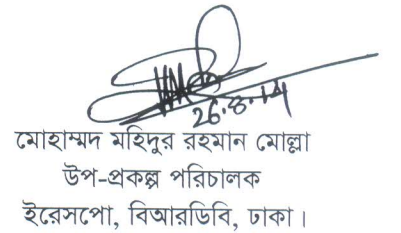 26.8.14
মোহাম্মদ মহিদুর রহমান মোল্লা
উপ-প্রকল্প পরিচালক
ইরেসপো, বিআরডিবি, ঢাকা।